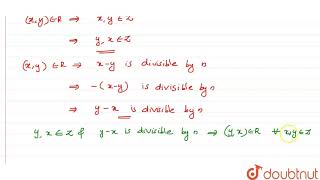 (x,y)∈R ⇒ x,y ∈ Z
⇒ y,x ∈ Z
(x,y) ∈ R ⇒ x-y is divisible by n
⇒ -(x-y) is divisible by n
⇒ y-x is divisible by n
y,x ∈ Z & y-x is divisible by n ⇒ (y,x)∈R ∀ x,y∈Z
doubtnut